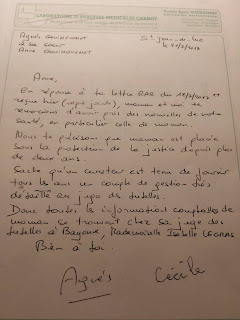 LABORATOIRE D'ANALYSES MEDICALES CARNOT
Agnès
à sa soeur
Anne
St Jean de Luz
Anne,
En réponse à ta lettre RAR du
reçue hier (sept jours), maman et moi te
remercions d'avoir pris des nouvelles de notre
santé, en particulier celle de maman.
Nous te précisons que maman est placée
sous la protection de la justice depuis plus
de deux ans.
Sache qu'un curateur est tenu de fournir
tous les ans un compte de gestion très
détaillé au juge des tutelles.
Donc toutes les informations comptables de
maman se trouvent chez sa juge des
tutelles à Bayonne, Mademoiselle Isabelle LEGRAS
Bien à toi.
Agnès Cécile